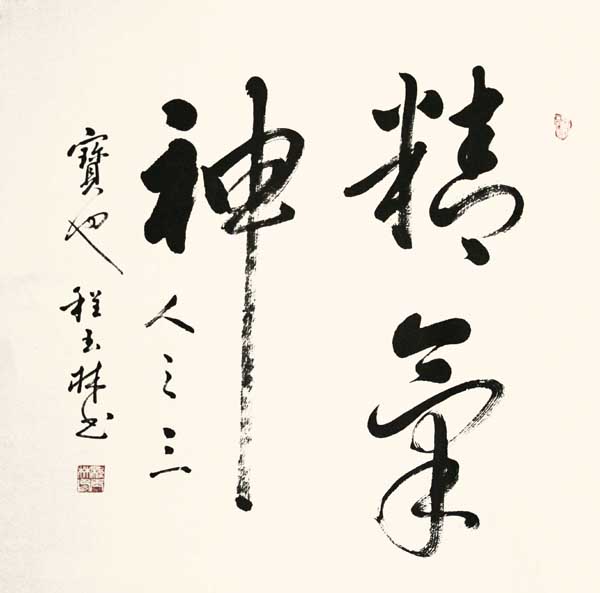 精氣
神
人之三
寶也 程玉林书